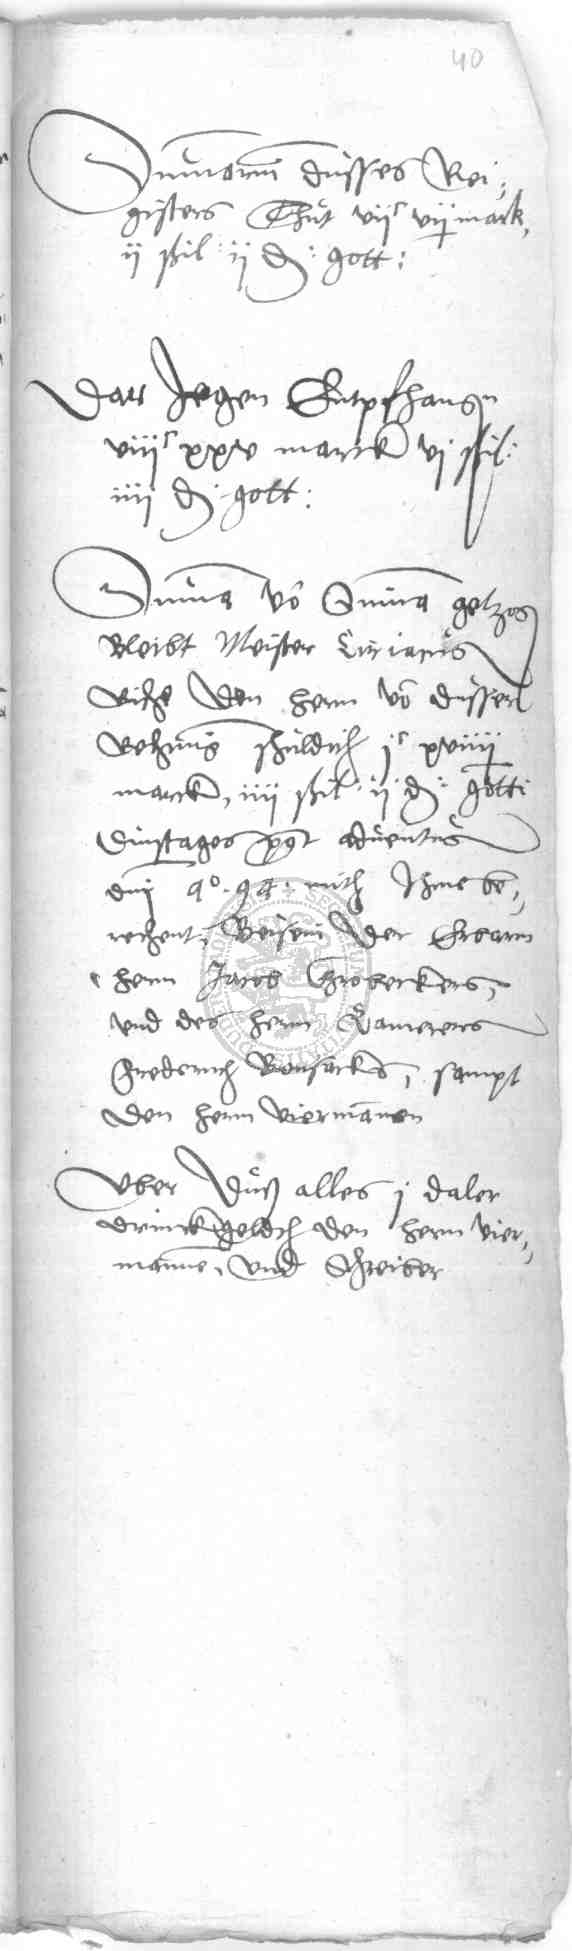 40
Summarum dusses Rei,
gisters Thut vijc vij mark,
ij ssil: ij d: gott:
Dar Jegen Entpfhangn
viijc xxv marck vj ssil:
iiij d: gott:
Summa vō Summa getzog
Bleibt Meister Ciriacus
den hern vō dusser
schuldich jc
marck, iiij ssil: ij d: gotti
Dinstages post adventus
dnj Ao. 94. mith Ihme be,,
rechent, Beisein der Erbarn
hern Jacob Grobeckers,
vnd des hern Camerers
Frederich Bonsacks, sampt
den hern viermannen
Vber duß alles j daler
drinckgeldh den hern vier,,
manne, vnd Schreiber
SECRETUM